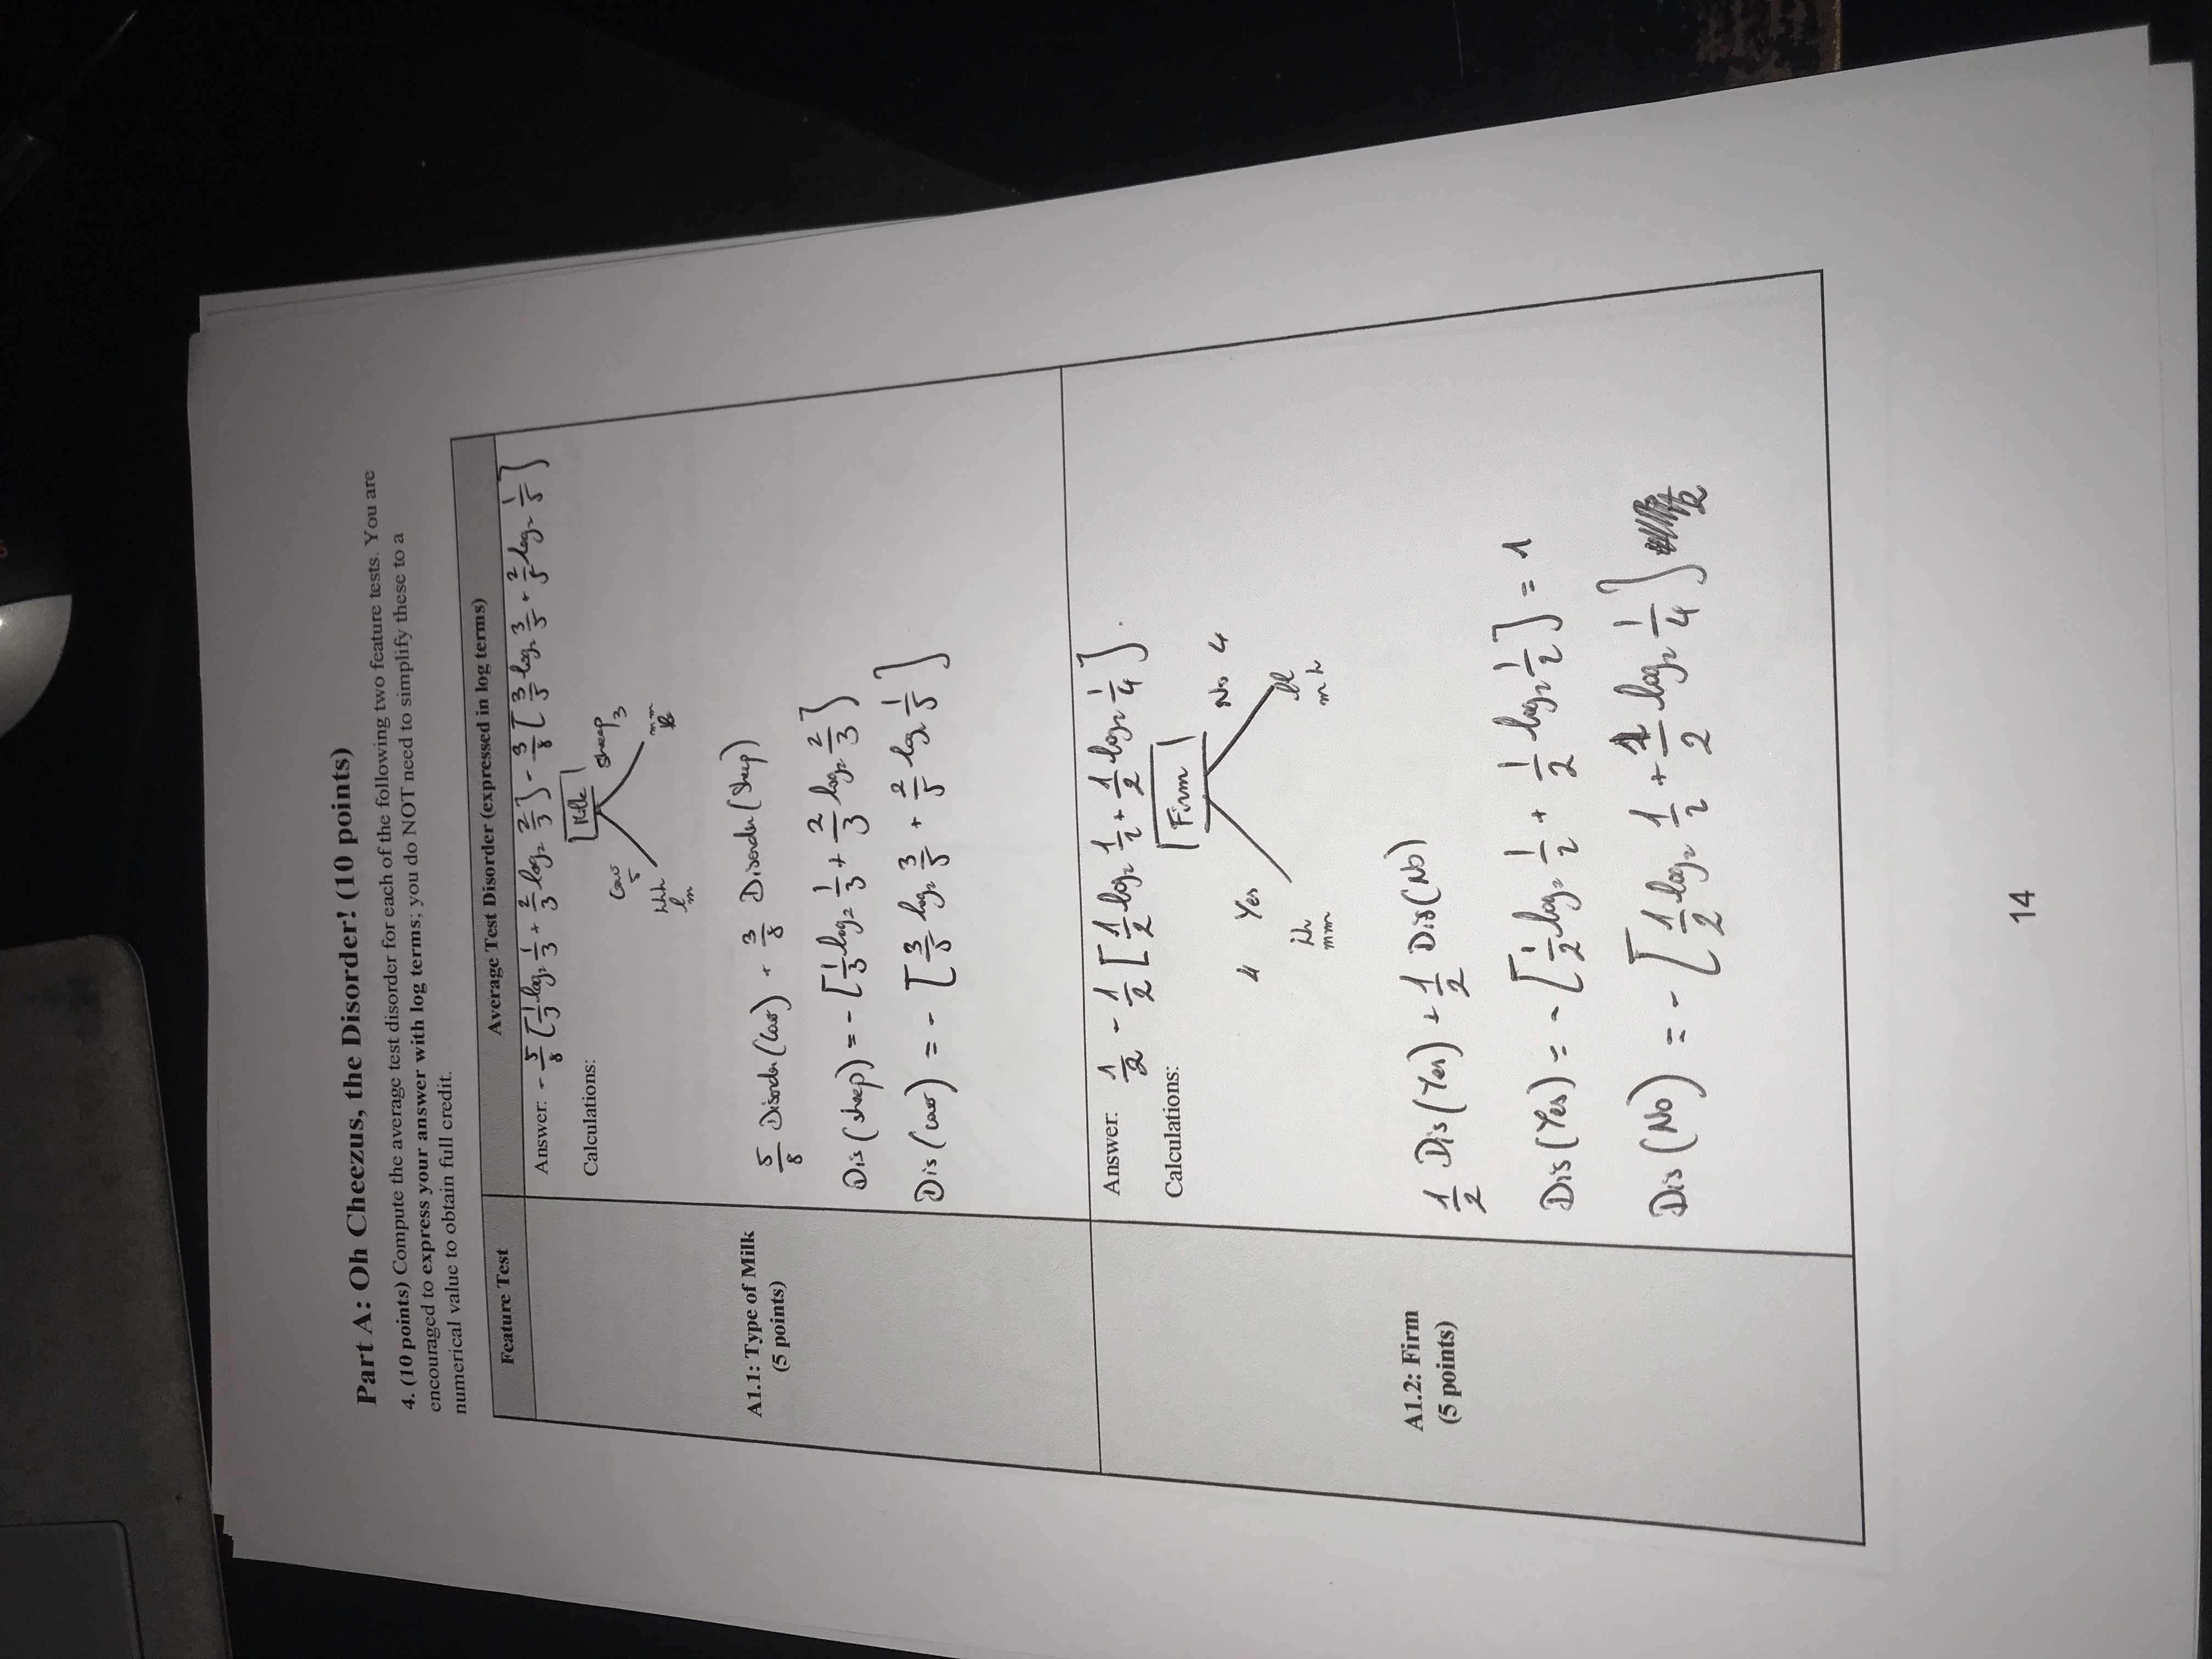 Part A: Oh Cheezus, the Disorder! (10 points)
4. (10 points) Compute the average test disorder for each of the following two feature tests. You are
encouraged to express your answer with log terms; you do NOT need to simplify these to a
numerical value to obtain full credit.
Feature Test
Average Test Disorder (expressed in log terms)
A1.1: Type of Milk
(5 points)
Answer: - 5/8 [1/3 log₂ 1/3 + 2/3 log₂ 2/3] - 3/8 [3/5 log₂ 3/5 + 2/5 log₂ 1/5]
Calculations:
Milk
Cow
5
sheep
3
hhh
l
m
mm
5/8 Disorder(Cow) + 3/8 Disorder(Sheep)
Dis(sheep) = - [1/3 log₂ 1/3 + 2/3 log₂ 2/3]
Dis(cow) = - [3/5 log₂ 3/5 + 2/5 log₂ 1/5]
A1.2: Firm
(5 points)
Answer: 1/2 - 1/2 [1/2 log₂ 1/2 + 1/2 log₂ 1/4].
Calculations:
Firm
4 Yes
No 4
hh
mm
ll
m h
1/2 Dis(Yes) + 1/2 Dis(No)
Dis(Yes) = - [1/2 log₂ 1/2 + 1/2 log₂ 1/2] = 1
Dis(No) = - [1/2 log₂ 1/2 + 1/2 log₂ 1/4]
14